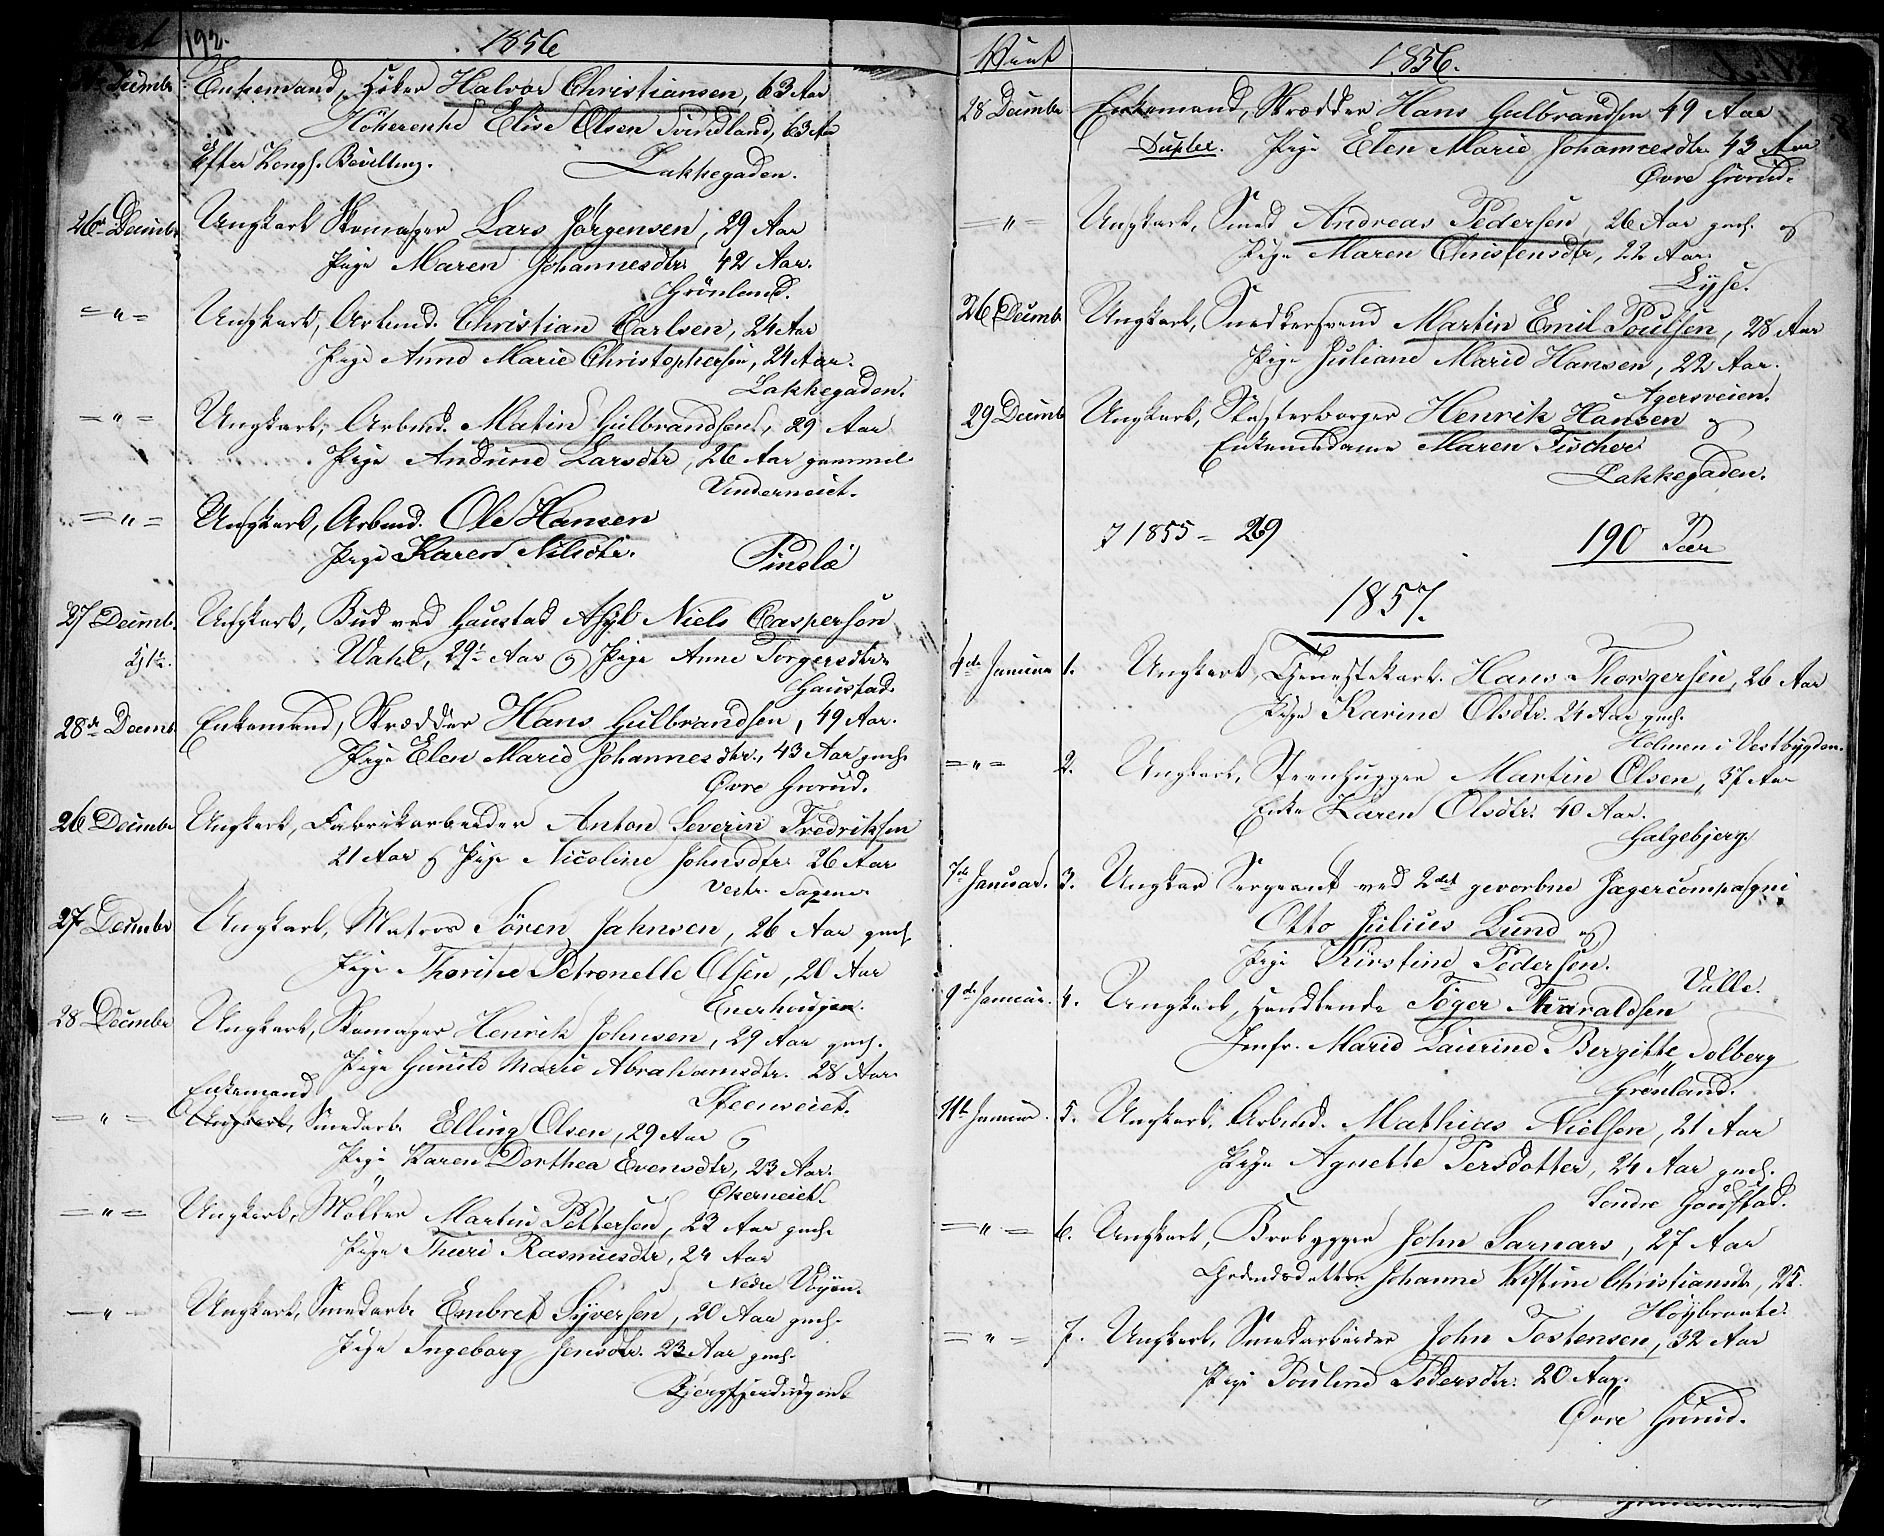 192. 1856
Decembr Enkemand, Höker Halvor Christiansen, 63 Aar
Höker enke Elise Olsen Svindland, 63 Aar
Efter Kongl. Bevilling. Lakkegaden.
26de Decembr Ungkarl Skomager Lars Jörgensen, 29 Aar
Pige Maren Johannesdtr. 42 Aar.
Grönland.
= " = Ungkarl, Arbmd. Christian Carlsen, 24 Aar
Pige Anne Marie Christophersen, 24 Aar.
Lakkegaden.
= " = Ungkarl, Arbmd. Matin Gulbrandsen, 29 Aar
Pige Andrine Larsdtr, 26 Aar gammel
Underneiet.
= " = Ungkarl, Arbmd. Ole Hansen
Pige Karen Nilsdtr.
Pinslö
27 Decemb. Ungkarl, Bud ved Gaustad Asyl Niels Caspersen
Wahl, 29 Aar og Pige Anne Torgersdtr.
Gaustad.
28de Decemb. Enkemand, Skrædder Hans Gulbrandsen, 49 Aar.
Pige Elen Marie Johannesdtr., 43 Aar gmel.
Øvre Grorud.
26 Decembr Ungkarl, Fabrikarbeider Anton Severin Fredriksen
21 Aar og Pige Nicoline Johnsdtr. 26 Aar
Vestr. Sagene
27 Decembr Ungkarl, Matros Sören Jahnsen, 26 Aar gmel
Pige Thorine Petronelle Olsen, 20 Aar
Enerhougen.
28 Decembr Ungkarl, Skomager Henrik Johnsen, 29 Aar gmel.
Pige Gunild Marie Abrahamsdtr. 28 Aar
Steenneiet.
Enkemand
= " = Ungkarl, Smedarb. Elling Olsen, 29 Aar og
Pige Karen Dorthea Evensdtr, 23 Aar.
Økerneiet.
= " = Ungkarl, Möller Martin Pettersen, 23 Aar gmel.
Pige Thuri Rasmusdtr, 24 Aar
Nedre Vöyen.
= " Ungkarl, Smedarb. Embret Syversen, 20 Aar gmel.
Pige Ingeborg Jensdtr. 23 Aar gmel.
1856.
28 Decembr Enkemand, Skrædder Hans Gulbrandsen 49 Aar
Duplex. Pige Elen Marie Johannesdtr. 43 Aar
Øvre Grorud.
= " = Ungkarl, Smed Andreas Pedersen, 26 Aar gmel. og
Pige Maren Christensdtr, 22 Aar.
Lyse.
26 Decemb. Ungkarl, Snedkersvend Martin Emil Poulsen, 28 Aar
Pige Juliane Marie Hansen, 22 Aar.
Agersveien.
29 Decemb Ungkarl, Slagterborger Henrik Hansen og
Enkemadame Maren Fischer
Lakkegaden.
1855 = 29 190 Par
1857.
4de Januar 1. Ungkarl, Tjenestekarl. Hans Thorgersen, 26 Aar
Pige Karine Olsdtr. 24 Aar gmel.
Holmen i Vestbygden.
= " = 2. Ungkarl, Steenhugger Martin Olsen, 37 Aar
Enke Karen Olsdtr. 40 Aar.
Galgebjerg.
7de Januar. 3. Ungkar Sergeant ved 2det gevorbne Jægercompagni
Otto Julius Lund og
Pige Kirstine Pedersen.
Valle.
9de Januar. 4. Ungkarl, Handlende Töger Tharaldsen
Jmfr. Marie Laurine Bergitte Solberg
Grönland.
11te Januar. 5. Ungkarl, Arbmd. Mathias Nielsen, 21 Aar
Pige Agnette Persdotter, 24 Aar gmel.
Söndre Goustad.
= " = 6. Ungkarl, Brobygger John Sarnars, 27 Aar
Johanne Kistine Christiansdtr, 25
Höybraate.
= " = 7. Ungkarl, Smedarbeider John Tostensen, 32 Aar
Pige Pouline Pedersdtr. 20 Aar.
Øvre Grorud.